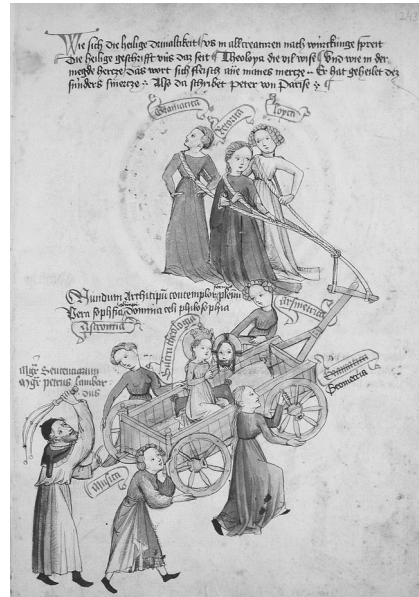 Wie sich die heilige drivaltikeit vs in all creaturen nach würckunge spreit
Die heilige geschrifft vns daz seit Theoloya die vil wise Vnd wie in der
megde hercze das wort sich fleischt ane manes mercze Er hat geheilet dez
sünders smercze Also da schribet peter von Parise
Gramatica
Retorica
loyca
Mundum Architipum contemplor
Vera sophia Domina celi philosophia
Astromia
Sacra theologia
Arismetica
Geometria
Magister Sententiarum
Magister petrus lambar
dus
Musica